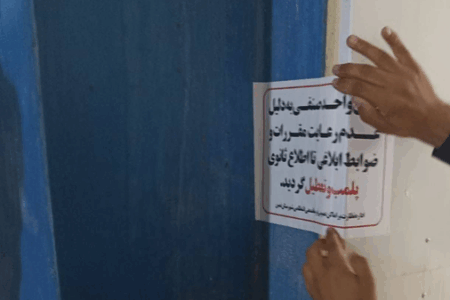 واحد صنفی به دلیل
عدم رعایت مقررات و
ضوابط ابلاغی تا اطلاع ثانوی
پلمب و تعطیل گردید.